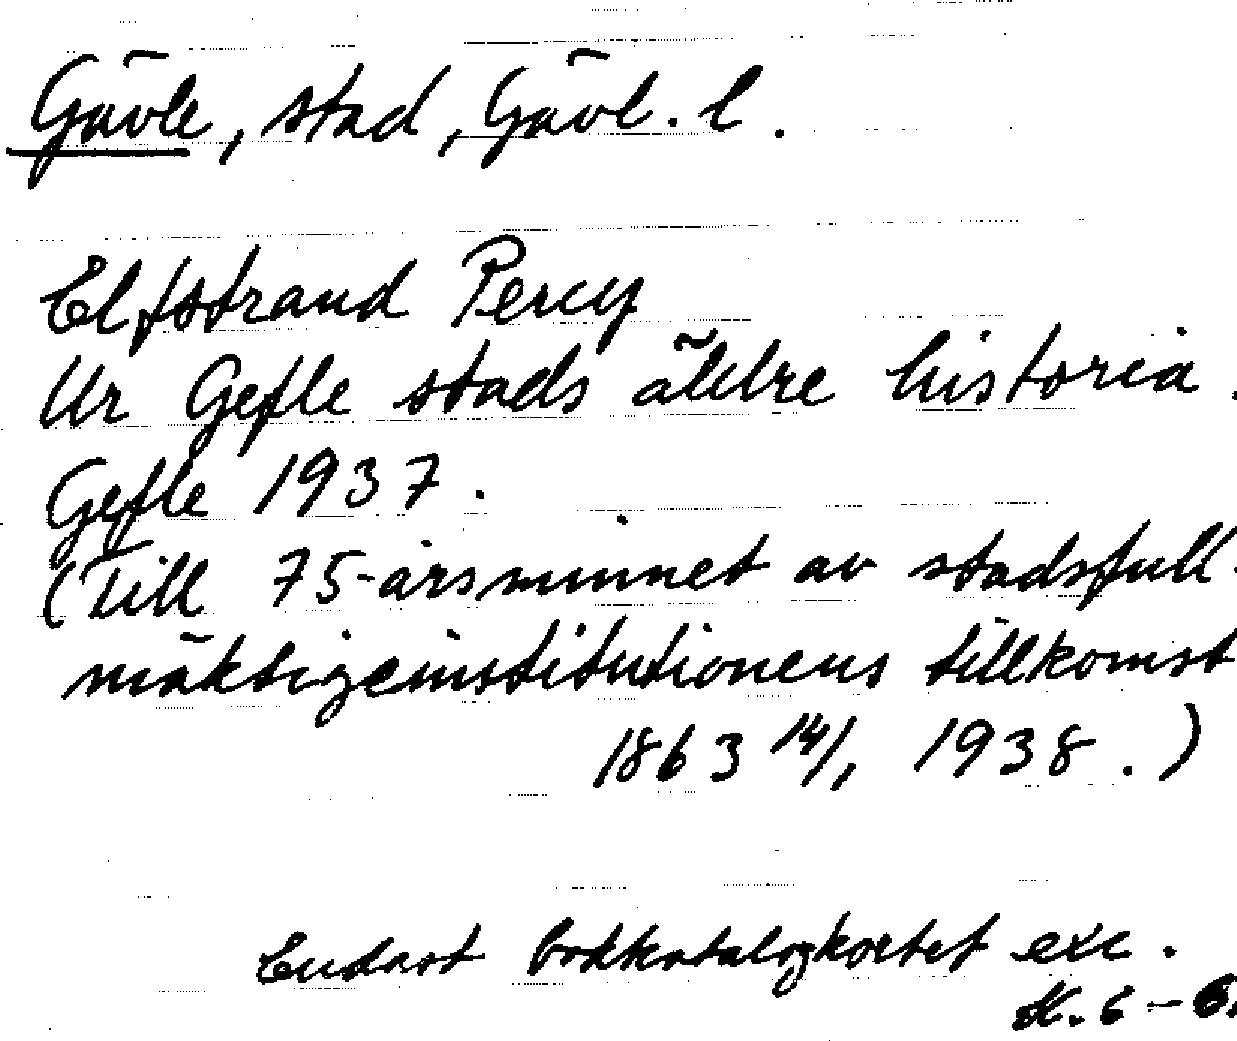 Gävle, stad, Gävl. l.
Elfstrand Percy
Ur Gefle stads äldre historia.
Gefle 1937.
(Till 75-årsminnet av stadsfull-
mäktigeinstitutionens tillkomst
1863 14/1 1938.)
Endast bokkatalogkortet exc.